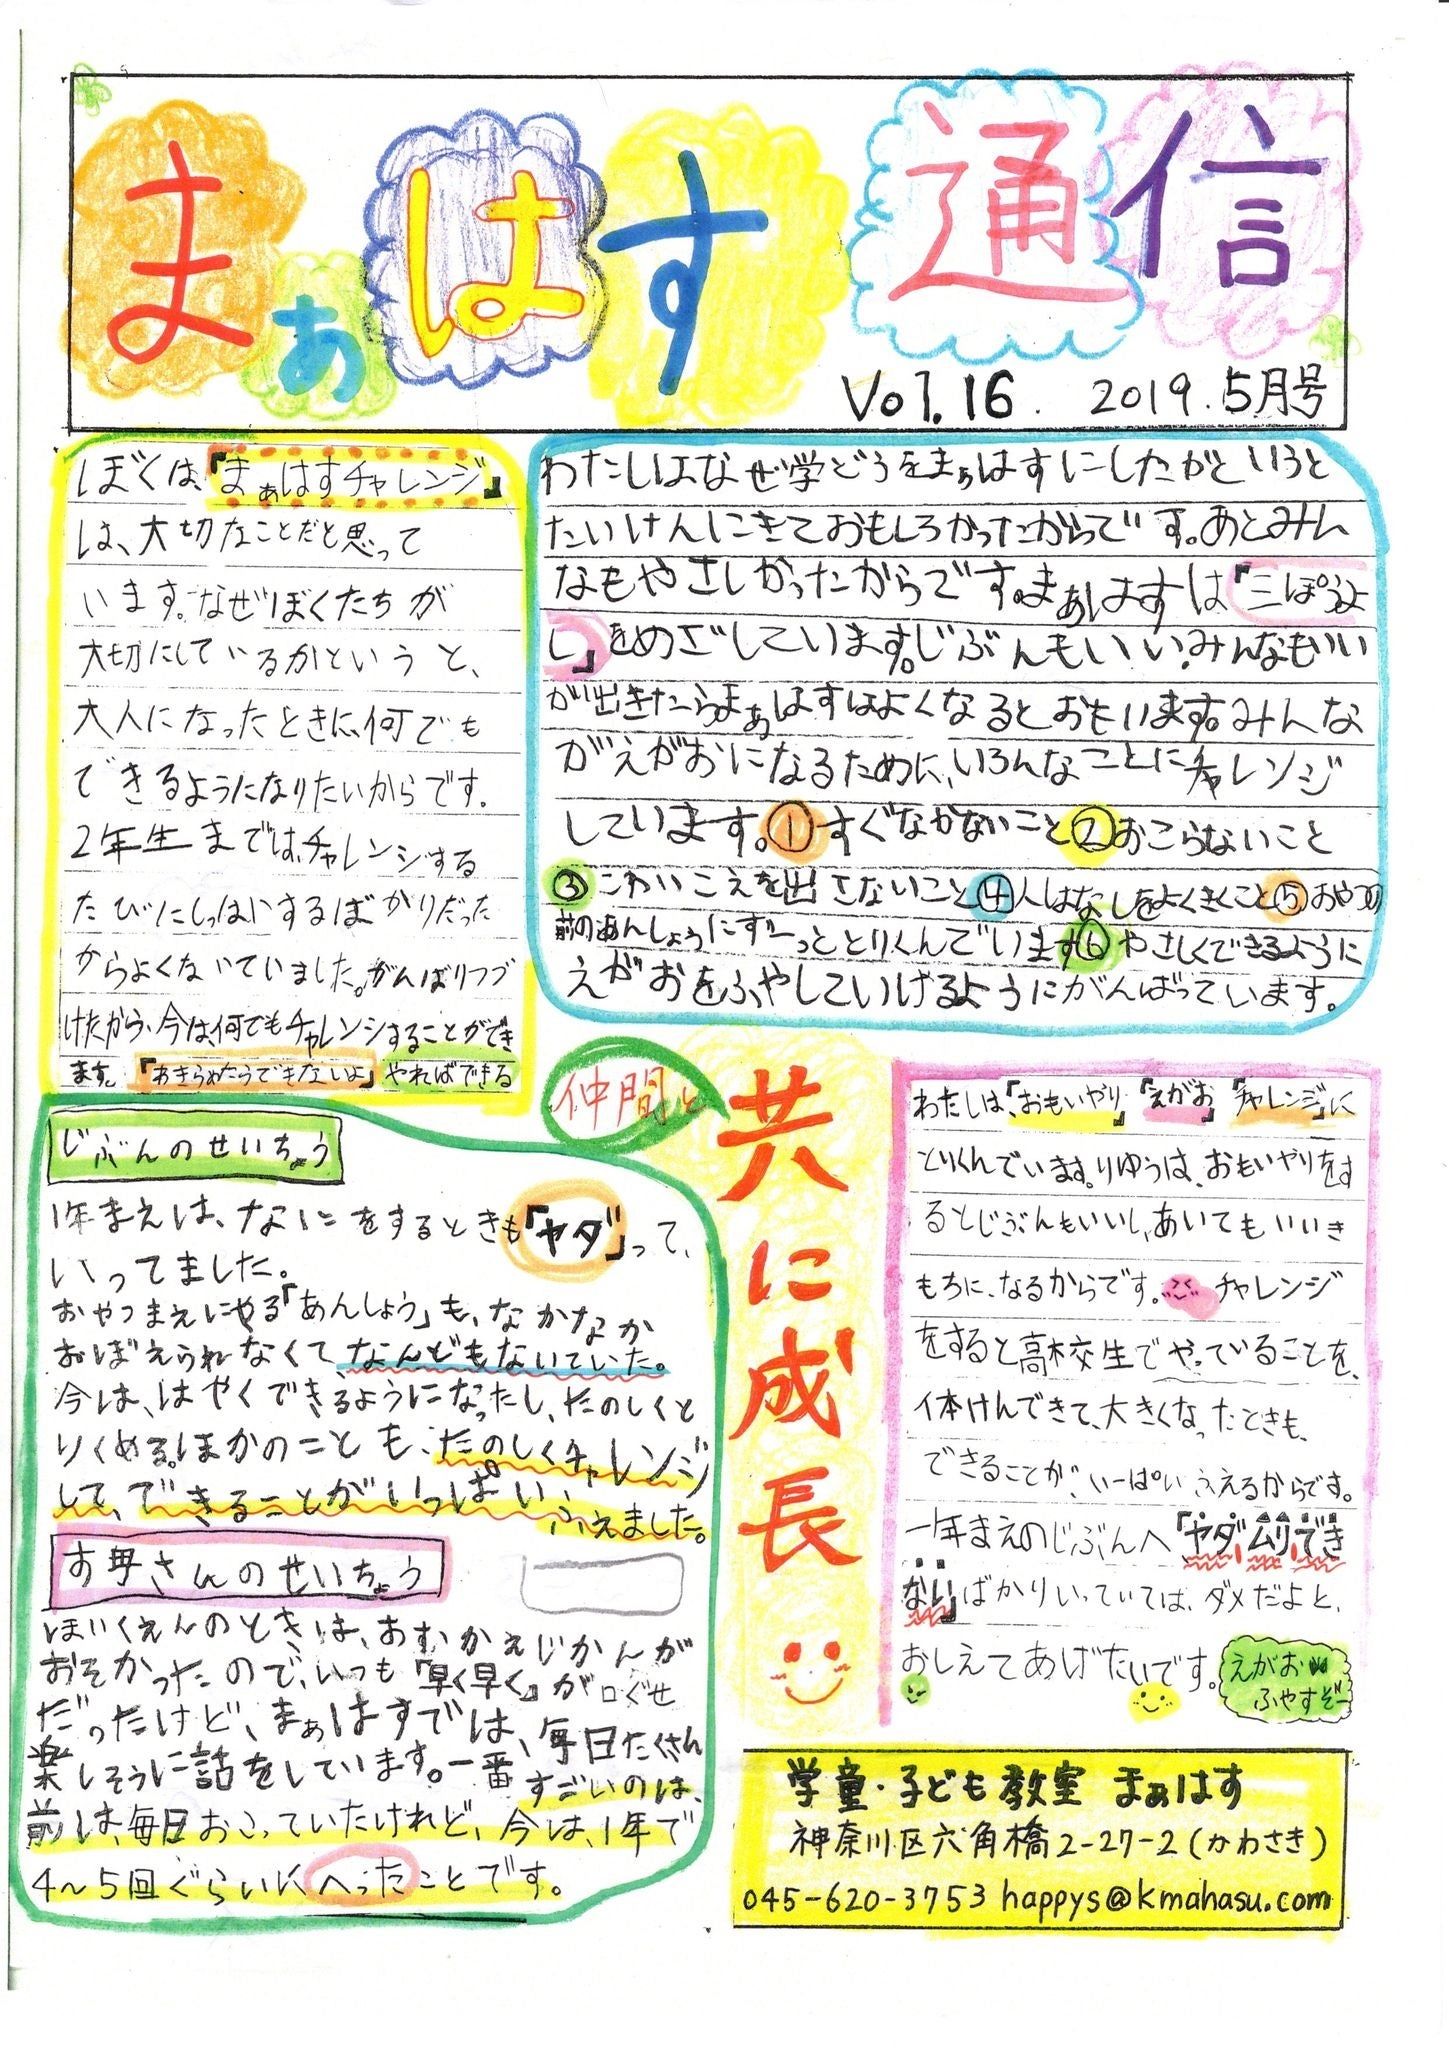 まぁはす通信
Vol.16. 2019.5月号
ぼくは、『まぁはすチャレンジ』
は、大切なことだと思って
います。なぜぼくたちが
大切にしているかというと、
大人になったときに、何でも
できるようになりたいからです。
2年生までは、チャレンジする
たびにしっぱいするばかりだった
からよくないていました。がんばりつづ
けたから、今は、何でもチャレンジすることができ
ます。『あきらめたらできないよ』やればできる
わたしは、なぜ学どうをまぁはすにしたかというと
たいけんにきておもしろかったからです。あとみん
なもやさしかったからです。まぁはすは『三ぽうよ
し』をめざしています。じぶんもいい、みんなもいい
が出きたらまぁはすはよくなるとおもいます。みんな
がえがおになるために、いろんなことにチャレンジ
しています。①すぐなかないこと②おこらないこと
③こわいこえを出さないこと④人はなしをよくきくこと⑤おやつの
前のあんしょうにずーっととりくんでいます⑥やさしくできるように
えがおをふやしていけるようにがんばっています。
仲間と
共に成長
じぶんのせいちょう
1年まえは、なにをするときも『ヤダ』って、
いってました。
おやつまえにやる『あんしょう』も、なかなか
おぼえられなくて、なんどもないていた。
今は、はやくできるようになったし、たのしくと
りくめる。ほかのことも、たのしくチャレンジ
して、できることがいっぱい、
ふえました。
お母さんのせいちょう
ほいくえんのときは、おむかえじかんが
おそかったので、いつも『早く早く』が口ぐせ
だったけど、まぁはすでは、毎日たくさん
楽しそうに話をしています。一番すごいのは、
前は、毎日おこっていたけれど、今は、1年で
4〜5回ぐらいにへったことです。
わたしは、『おもいやり』『えがお』『チャレンジ』に
とりくんでいます。りゆうは、おもいやりをす
るとじぶんもいいし、あいてもいいき
もちに、なるからです。チャレンジ
をすると高校生でやっていることを、
体けんできて、大きくなったときも、
できることが、いーぱいふえるからです。
一年まえのじぶんへ『ヤダ、ムリ、でき
ない』ばかりいっていては、ダメだよと、
おしえてあげたいです。
えがお
ふやすぞー
学童・子ども教室 まぁはす
神奈川区六角橋2-27-2(かわさき)
045-620-3753 happys@kmahasu.com